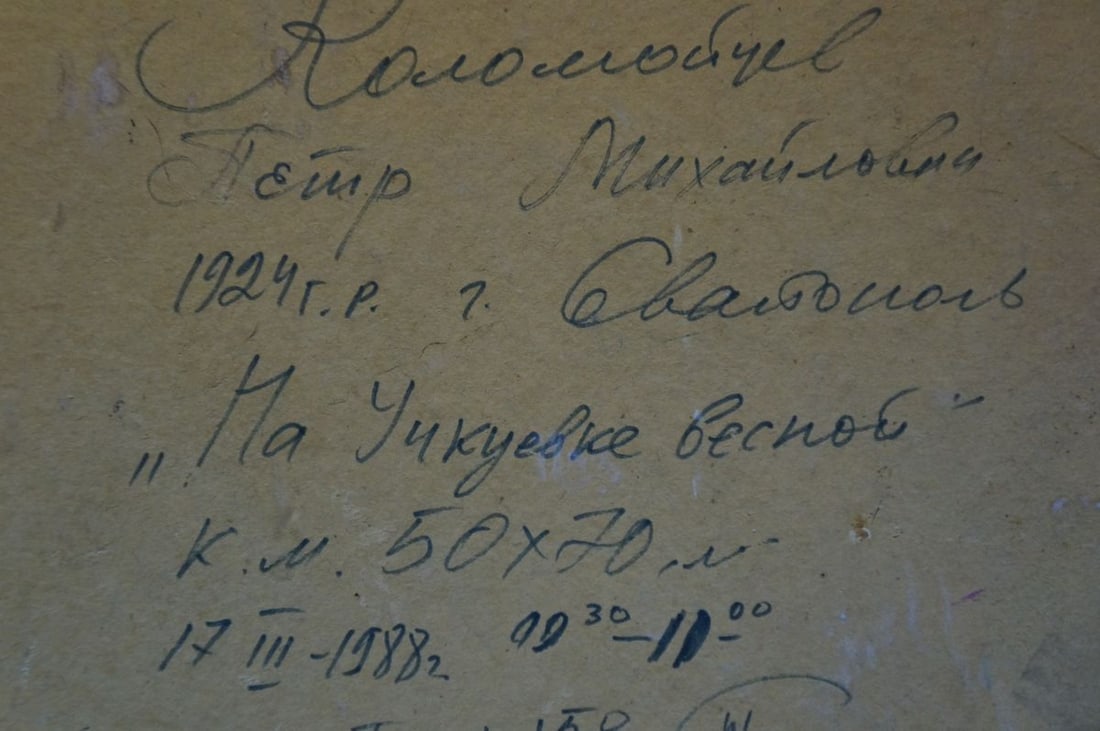 Коломойцев
Петр Михайлович
1924 г.р. г. Севастополь
„На Учкуевке весной"
к.м. 50х70
17 III - 1988г 30 - 11 00